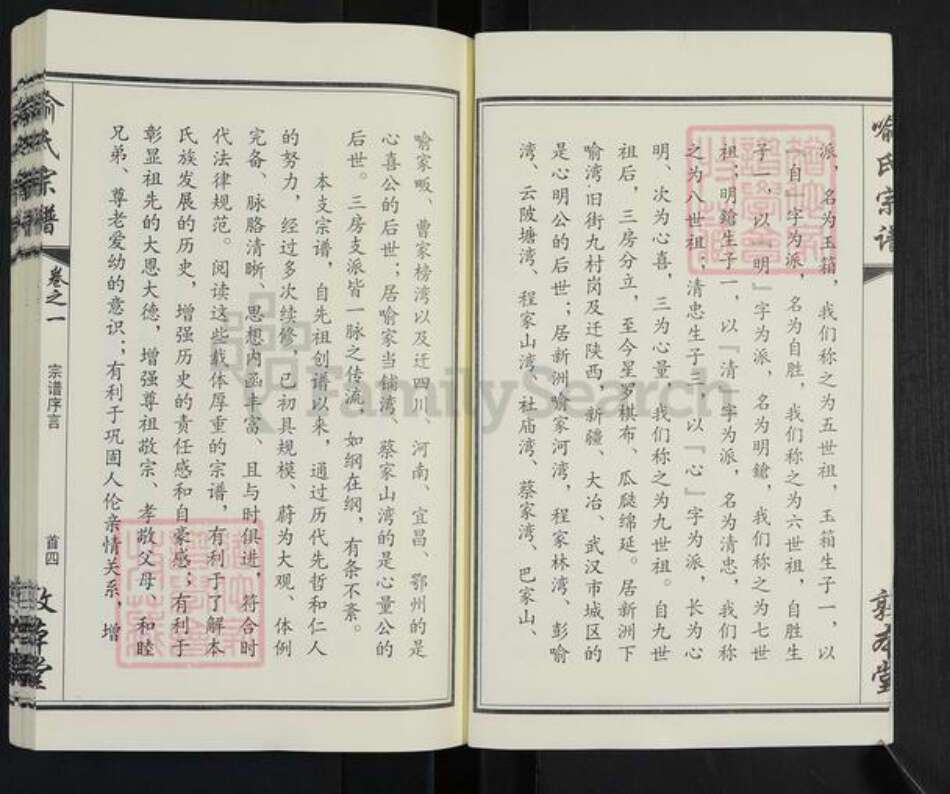 喻氏宗谱
敦本堂
派，名为玉箱，我们称之为五世祖，玉箱生子一，以
「自」字为派，名为自胜，我们称之为六世祖，自胜生
子一，以「明」字为派，名为明鎗，我们称之为七世
祖；明鎗生子一，以「清」字为派，名为清忠，我们称
之为八世祖；清忠生子三，以「心」字为派，长为心
明、次为心喜，三为心量，我们称之为九世祖。自九世
祖后，三房分立，至今星罗棋布、瓜瓞绵延。居新洲下
喻湾、旧街九村岗及迁陕西、新疆、大冶、武汉市城区的
是心明公的后世；居新洲喻家河湾，程家林湾、彭喻
湾、云陂塘湾、程家山湾、社庙湾、蔡家湾、巴家山、
喻家畈、曹家榜湾以及迁四川、河南、宜昌、鄂州的是
心喜公的后世；居喻家当铺湾、蔡家山湾的是心量公的
后世。三房支派皆一脉之传流，如纲在纲，有条不紊。
本支宗谱，自先祖创谱以来，通过历代先哲和仁人
的努力，经过多次续修，已初具规模、蔚为大观、体例
完备、脉胳清晰、思想内函丰富、且与时俱进，符合时
代法律规范。阅读这些载体厚重的宗谱，有利于了解本
氏族发展的历史，增强历史的责任感和自豪感；有利于
彰显祖先的大恩大德，增强尊祖敬宗、孝敬父母、和睦
兄弟、尊老爱幼的意识；有利于巩固人伦亲情关系，增
喻氏宗谱
卷之一
宗谱序言
首四
敦本堂
FamilySearch